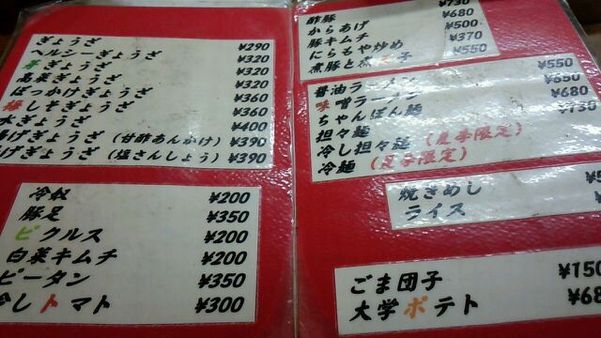 ぎょうざ ¥290
ヘルシーぎょうざ ¥320
ぎょうざ ¥320
高菜ぎょうざ ¥320
ぶっかけぎょうざ ¥360
しそぎょうざ ¥360
水ぎょうざ ¥400
揚げぎょうざ (甘酢あんかけ) ¥390
揚げぎょうざ (塩さんしょう) ¥390
冷奴 ¥200
豚足 ¥350
ピクルス ¥200
白菜キムチ ¥200
ピータン ¥350
冷しトマト ¥300
¥730
酢豚 ¥680
からあげ ¥500
豚キムチ ¥370
にらもや炒め ¥550
煮豚と煮玉子
醤油ラーメン ¥550
味噌ラーメン ¥650
ちゃんぽん麺 ¥680
担々麺 ¥730
冷し担々麺 (夏季限定)
冷麺 (夏季限定)
焼きめし
ライス
ごま団子 ¥150
大学ポテト